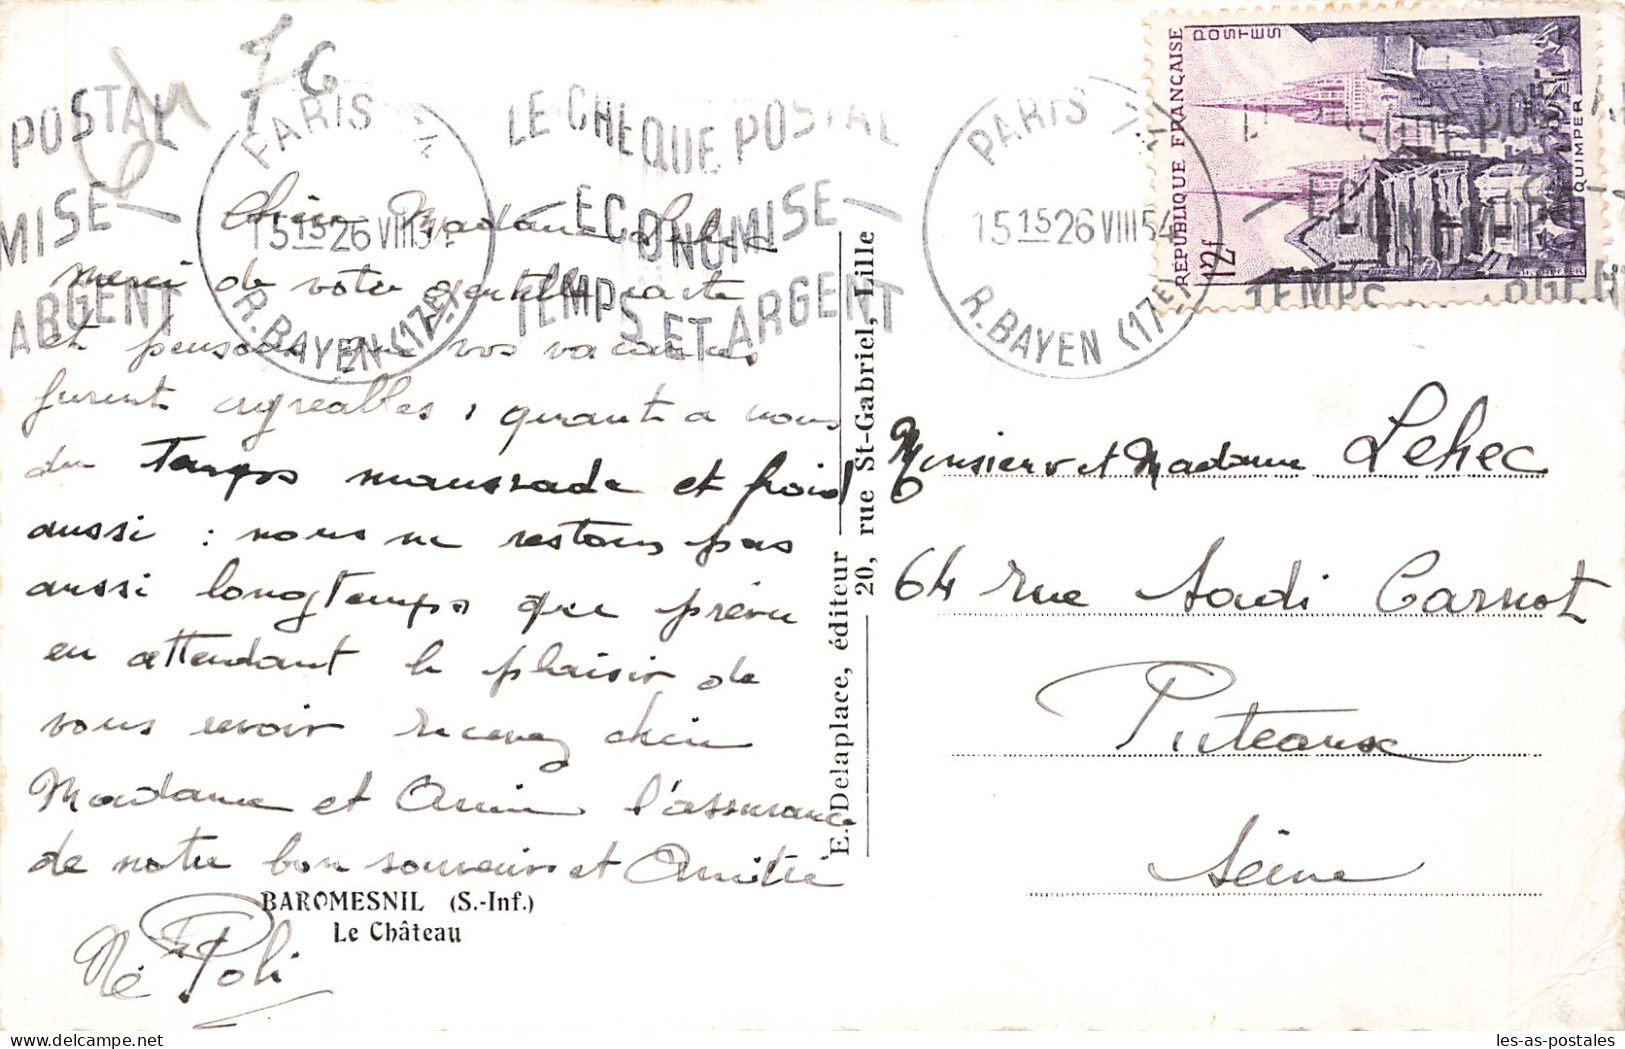 76
POSTAL
MISE
ARGENT
PARIS
15 15 26 VIII 54
R. BAYEN (17E)
LE CHEQUE POSTAL
ECONOMISE
TEMPS ET ARGENT
PARIS
15 15 26 VIII 54
R. BAYEN (17E)
RÉPUBLIQUE FRANÇAISE
POSTES
12f
QUIMPER
Chère Madame Lehec
merci de votre gentille carte
et pensons que vos vacances
furent agréables, quant a nous
du Temps maussade et froid
aussi : nous ne restons pas
aussi longtemps que prévu
en attendant le plaisir de
vous revoir recevez chère
Madame et Amie l'assurance
de notre bon souvenir et Amitié
BAROMESNIL (S.-Inf.)
Le Château
E. Delaplace, éditeur
20, rue St-Gabriel, Lille
Monsieur et Madame Lehec
64 rue Sadi Carnot
Puteaux
Seine
les-as-postales